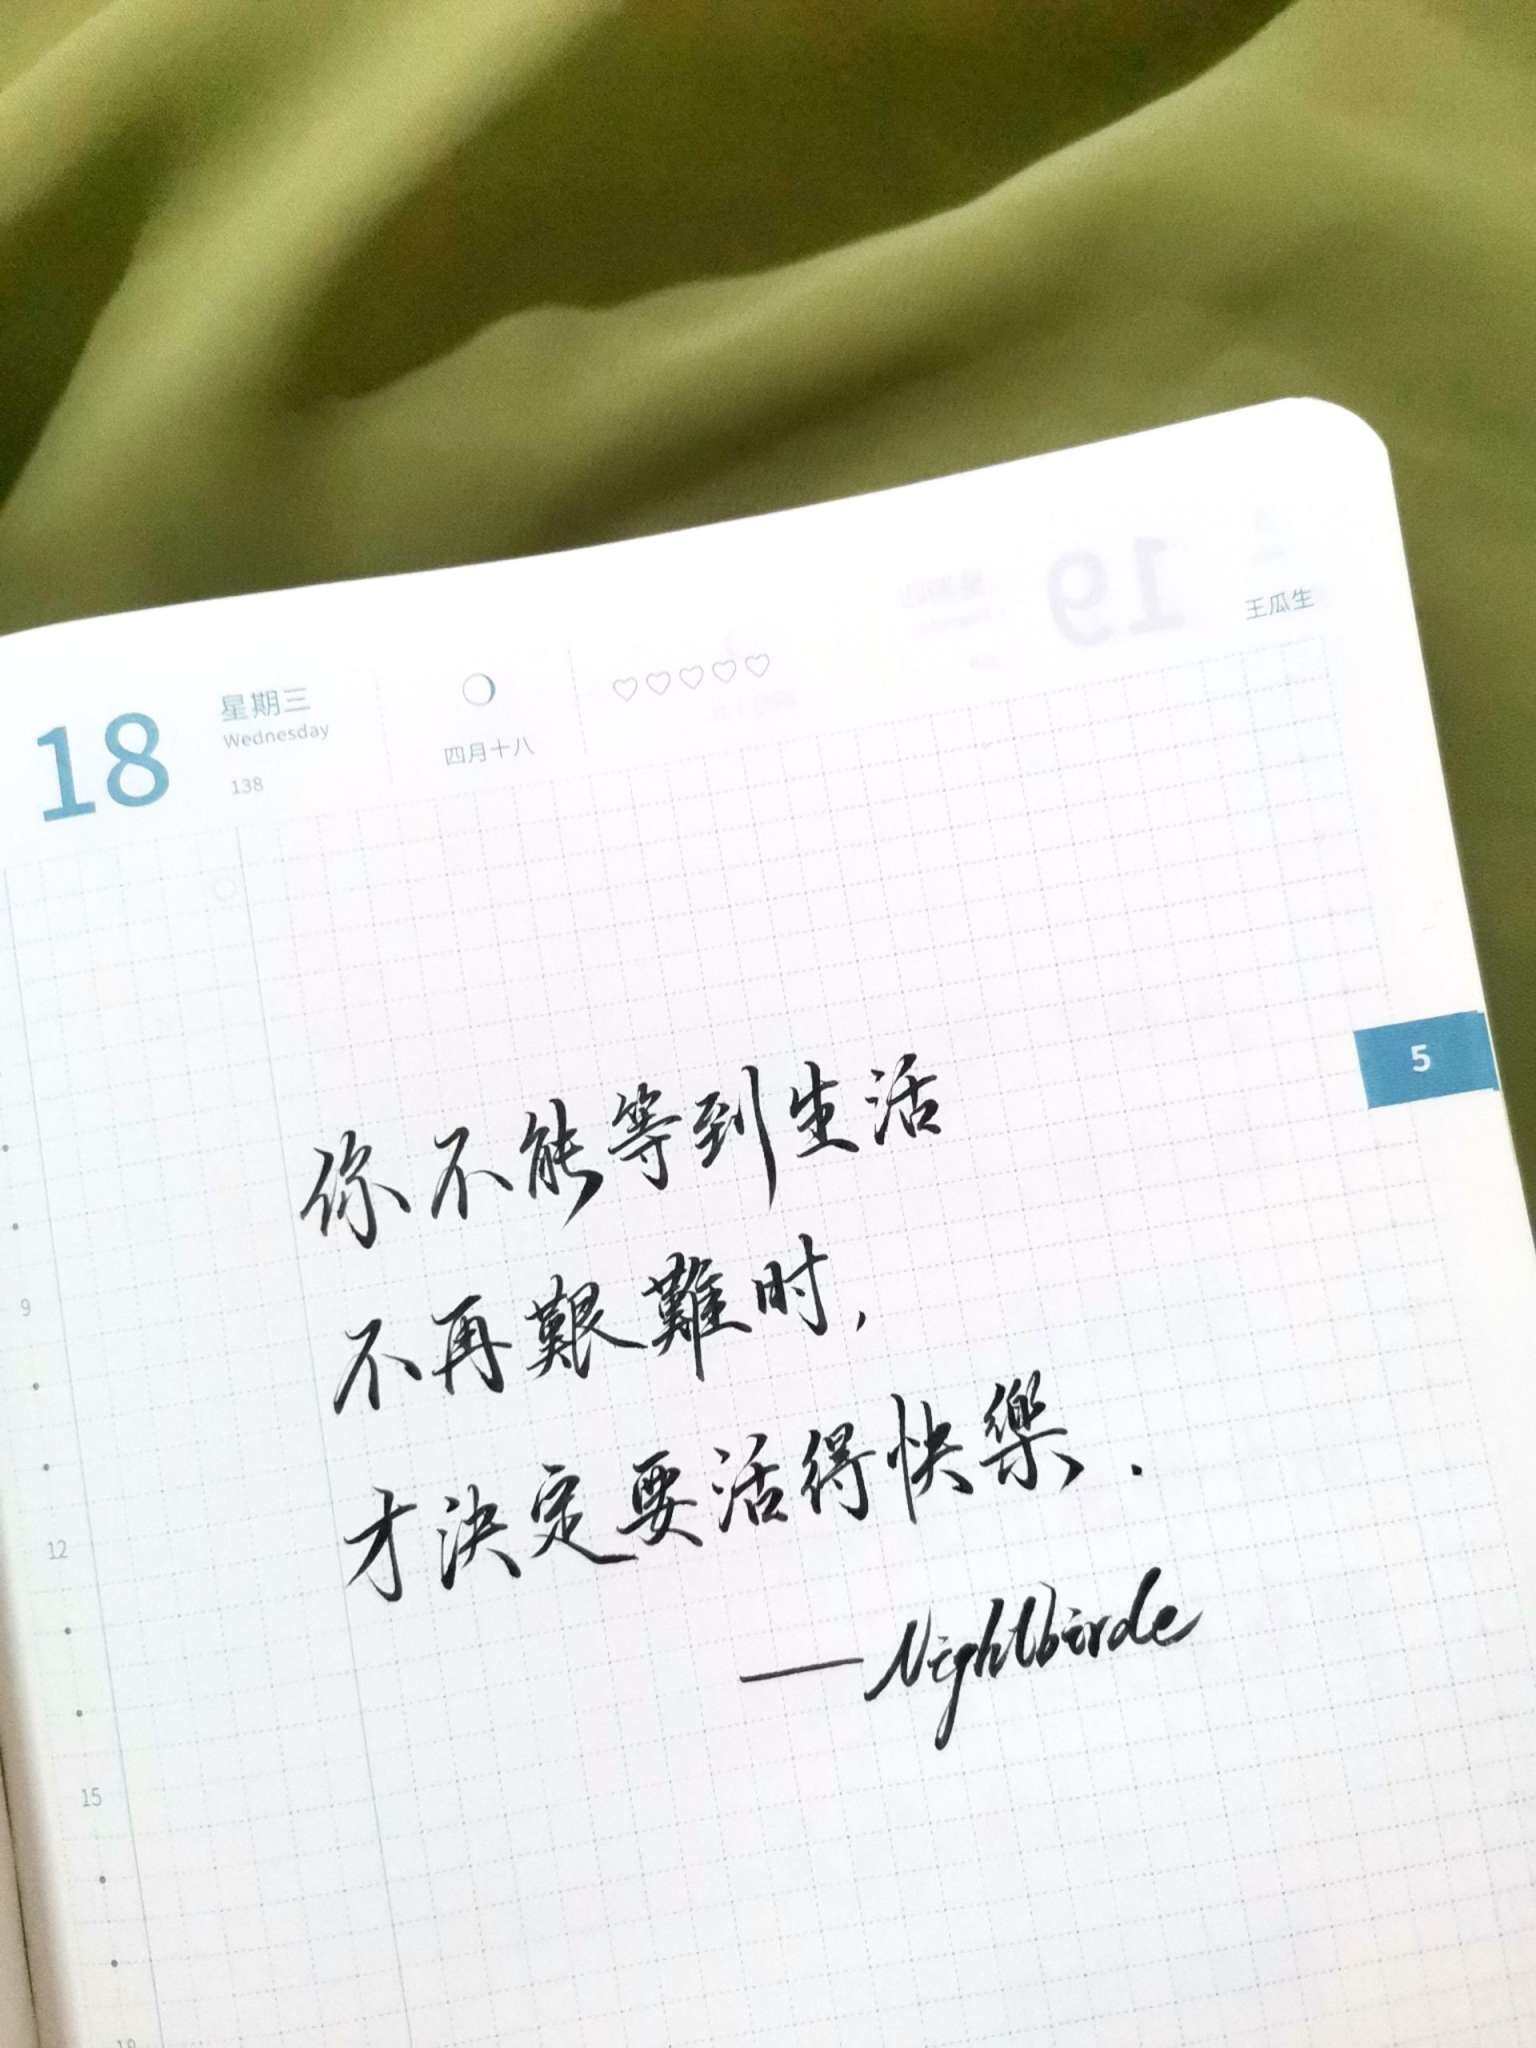 18
星期三
Wednesday
138
四月十八
19
王瓜生
5
你不能等到生活
不再艱難时,
才決定要活得快樂.
——Nightbirde
9
12
15
18